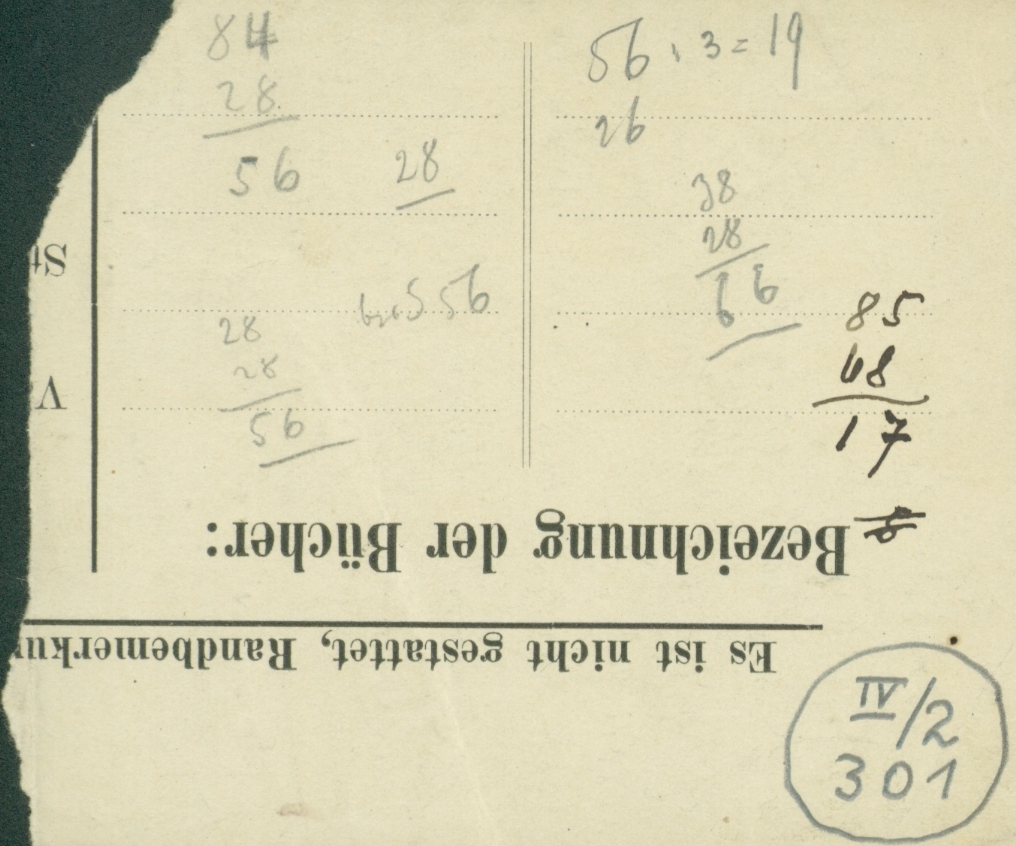 84
28
56
28
28
28
56
556
56 : 3 = 19
26
38
28
66
85
68
17
8
St
V
Bezeichnung der Bücher:
Es ist nicht gestattet, Randbemerku
IV/2
301